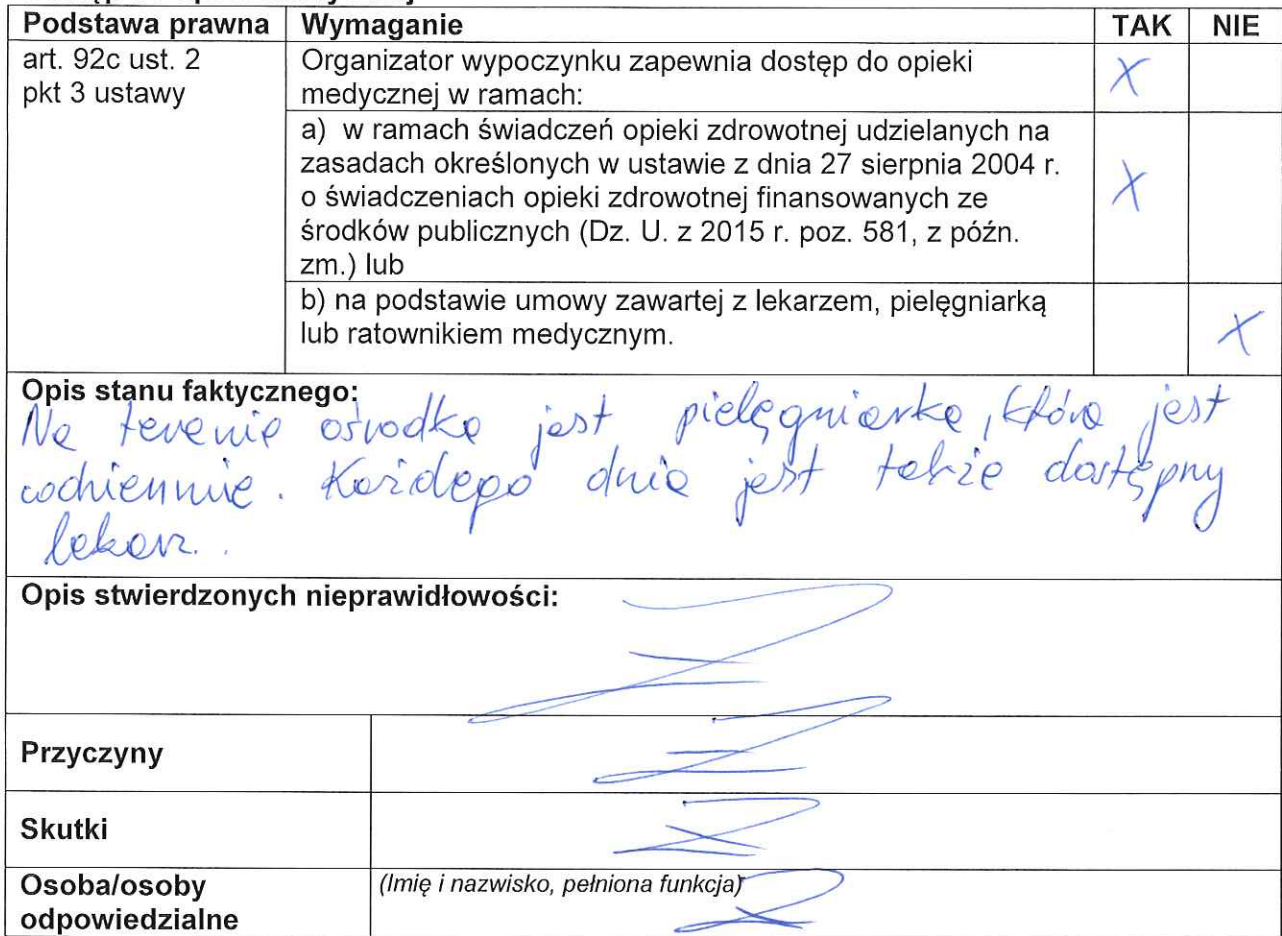 Podstawa prawna Wymaganie TAK NIE
art. 92c ust. 2
pkt 3 ustawy
Organizator wypoczynku zapewnia dostęp do opieki
medycznej w ramach:
X
a) w ramach świadczeń opieki zdrowotnej udzielanych na
zasadach określonych w ustawie z dnia 27 sierpnia 2004 r.
o świadczeniach opieki zdrowotnej finansowanych ze
środków publicznych (Dz. U. z 2015 r. poz. 581, z późn.
zm.) lub
X
b) na podstawie umowy zawartej z lekarzem, pielęgniarką
lub ratownikiem medycznym.
X
Opis stanu faktycznego:
Na terenie ośrodka jest pielęgniarka, która jest
codziennie. Każdego dnia jest także dostępny
lekarz.
Opis stwierdzonych nieprawidłowości:
Przyczyny
Skutki
Osoba/osoby
odpowiedzialne
(Imię i nazwisko, pełniona funkcja)